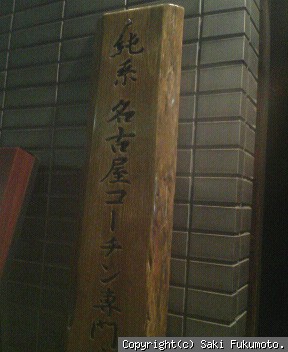 純系 名古屋コーチン専門
Copyright(c) Saki Fukumoto.